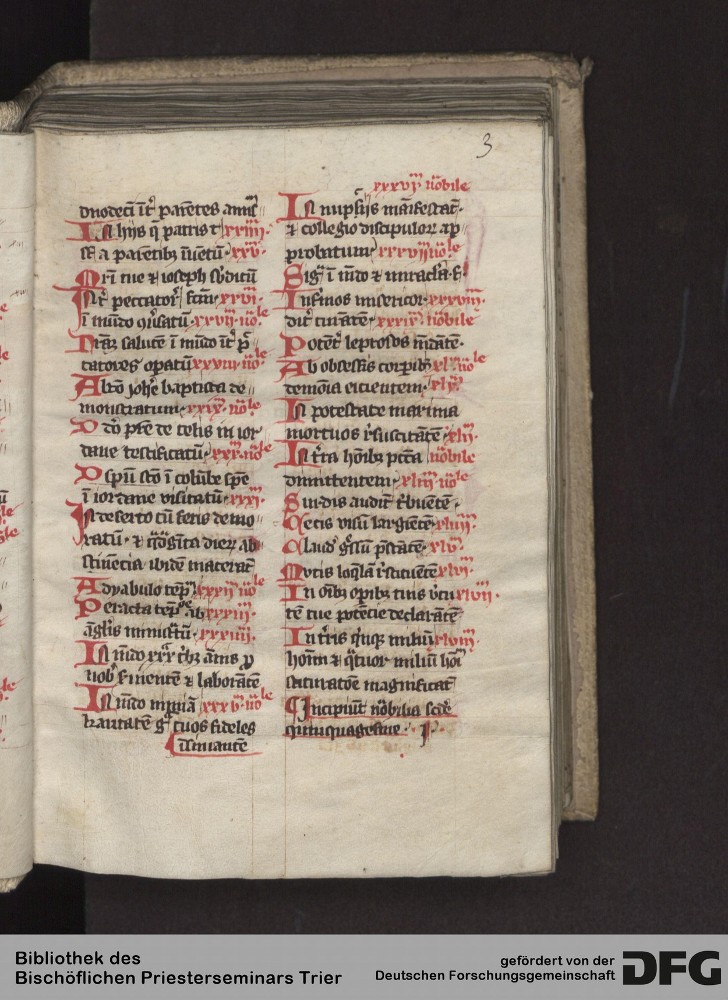 3
duodeci īt parētes amis
In hiis q̄ patris t xxiiij.
sc̄ a parētibꝫ īuētū xxv.
Mr̄i tue et ioseph sb̓ditū
Int̓ peccator fc̄m xxvi.
ī mūdo ꝯu̓satū xxvij nōle
Nrāꝫ salutē ī mūdo īt̓ pc̄
catores opatū xxviii nōle
A btō joh̄e baptista de
monstratum xxix nōle
D dō pr̄e de celis in ior
dane testificatū xxx nōle
D spū sc̄o ī colūbe spē
ī iordane visitatū xxxi.
In deserto cū feris demo
ratū et qdragīta dieꝝ ab
stinēcia ibidē macerat̄
A dyabulo tēp xxxij nōle
Peracta tēpōe ab xxxiij
āglis ministrū xxxiiij.
In mūdo xxx tͥbꝫ annis p̄
nob̄ s̓uientē et laborātē
In mūdo xxxv nōle
karitatē tuos fideles
īsinuantē
xxxvj nōbile
In nupsijs manifestat̄
et collegio discipulorꝝ ap
probatum xxxvij nōle
Sig ī mūdo et miracla f
Infirmos misericor xxxviij
dit̓ curātē xxxix nōbile
Potēt leprosos mūdātē
Ab obsessis corpibꝫ xl nōle
demōnia eicientem xlj
In potestate maxima
mortuos r̓suscitātē xlij.
In tr̄a hoībꝫ pctā nōbile
dimittentem xliij nōle
Surdis audit̄ t̓buētē
Cecis visū largientē xliiij.
Claud g̓ssū p̄stātē xlv.
Mutis loq̄lā r̓stituētē xlvi
In oībꝫ opibꝫ tuis v̓tu xlvij
tē tue potēcie declarātē
In tr̄is qnqꝫ miliū xlviij
hom̄ et qtuor miliū hoī
saturatōe magnificat̄
Incipiūt nōbilia scd̄e
quinquagesīe
Bibliothek des
Bischöflichen Priesterseminars Trier
gefördert von der
Deutschen Forschungsgemeinschaft
DFG